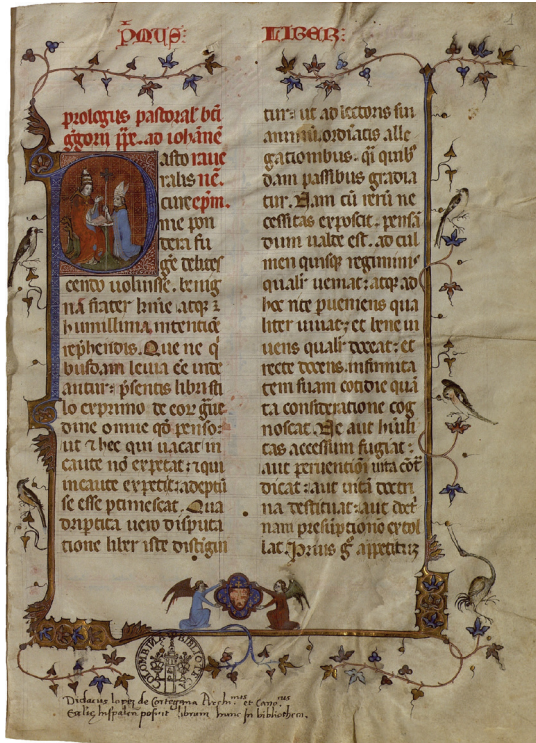 P̄MUS: LIBER:
1
prologus pastoral' bt̄i
g̅gorii pp̄e. ad iohānē
Pastoralis
raue
nē.
cure
ep̄m.
me pon
dera fu
g̅e delites
cendo uoluisse. benig
nā frater km̄e atq̄ ꝛ
humillima intentiōe
rep̄hendis. Que ne q̄
busdam leuia c̄e uide
antur: p̄sentis libri sti
lo exprimo de eoꝛ g̅ui
dine omne qō penso:
ut ꝛ hec qui uacat in
caute nō expetat: ꝛ qui
incaute expetit: adeptū
se esse ptimescat. Qua
dripertita uero disputa
tione liber iste distigui
tur: ut ad lectoris sui
animū ordīatis alle
gationibus. q̄i quib'
dam passibus gradia
tur. Nam cū rerū ne
cessitas exposcit. pensā
dum ualde est. ad cul
men quisq̄ regiminis
qualit' ueniat: atq̄ ad
hoc rite p̄ueniens qua
liter uiuat: et bene ui
uens qualit' doceat: et
recte docens. infirmita
tem suam cotidie quā
ta consideratione cog
noscat. Ne aut humili
tas accessum fugiat:
aut peruentioni uita cōt̄
dicat: aut uitā doctri
na destituat: aut doct̄
nam presūptio extol
lat. Prius g̊ appetituꝫ
COLOMBINA BIBLIOTECA
Didacus lopeȥ de Cortegana Archi.nus et Cano.cus
Ecclię hispaleñ posuit librum hunc in bibliotheca.